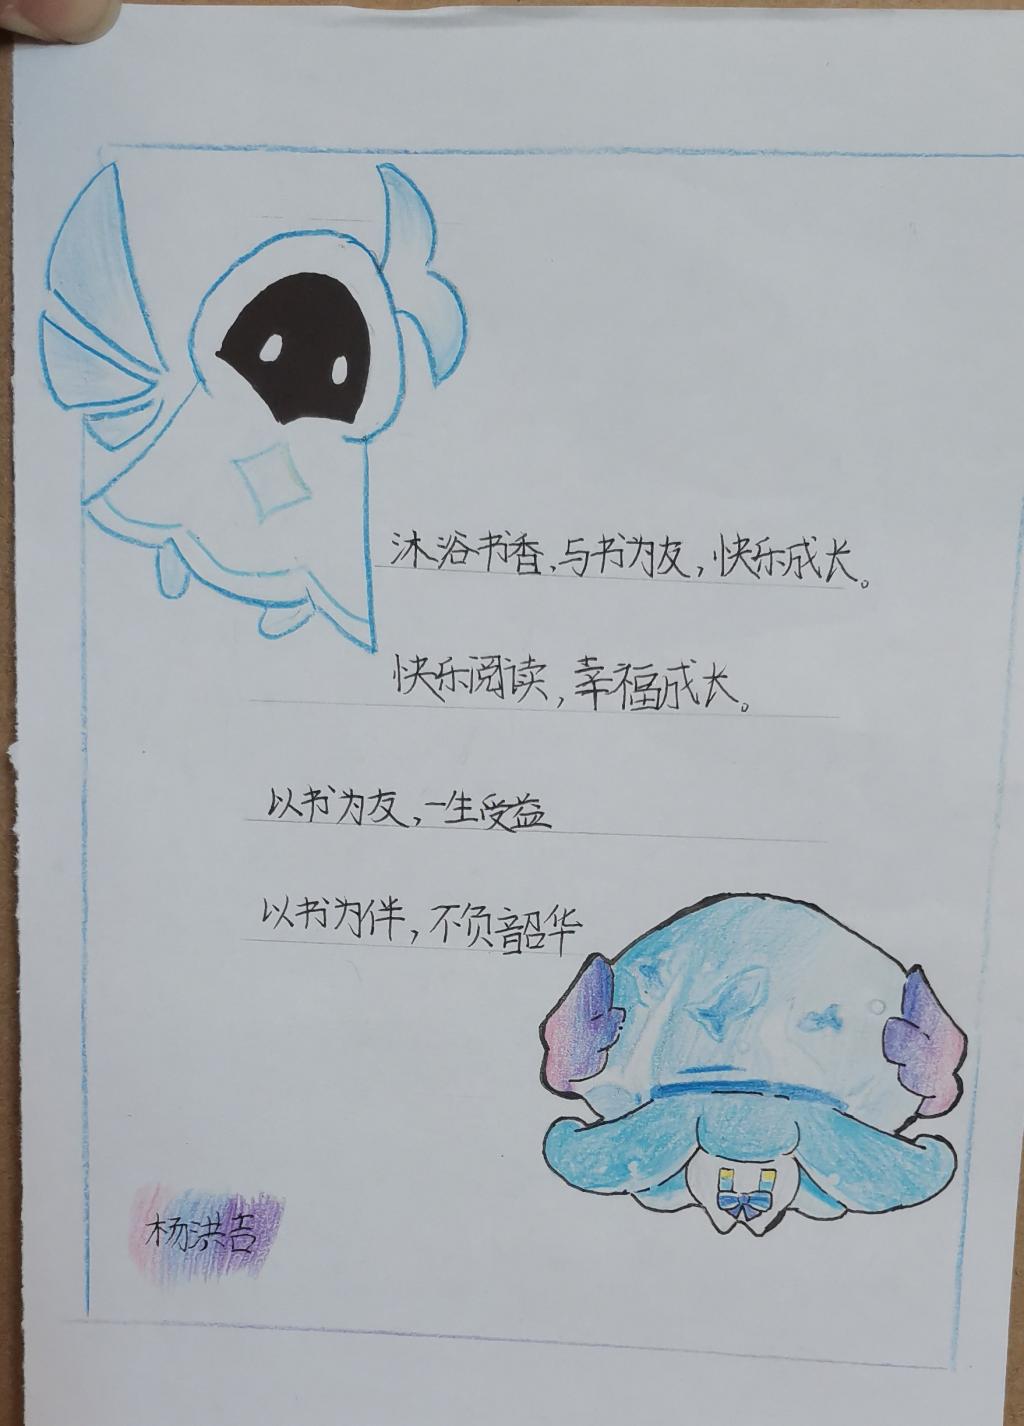 沐浴书香,与书为友,快乐成长。
快乐阅读,幸福成长。
以书为友,一生受益
以书为伴,不负韶华
杨洪吉